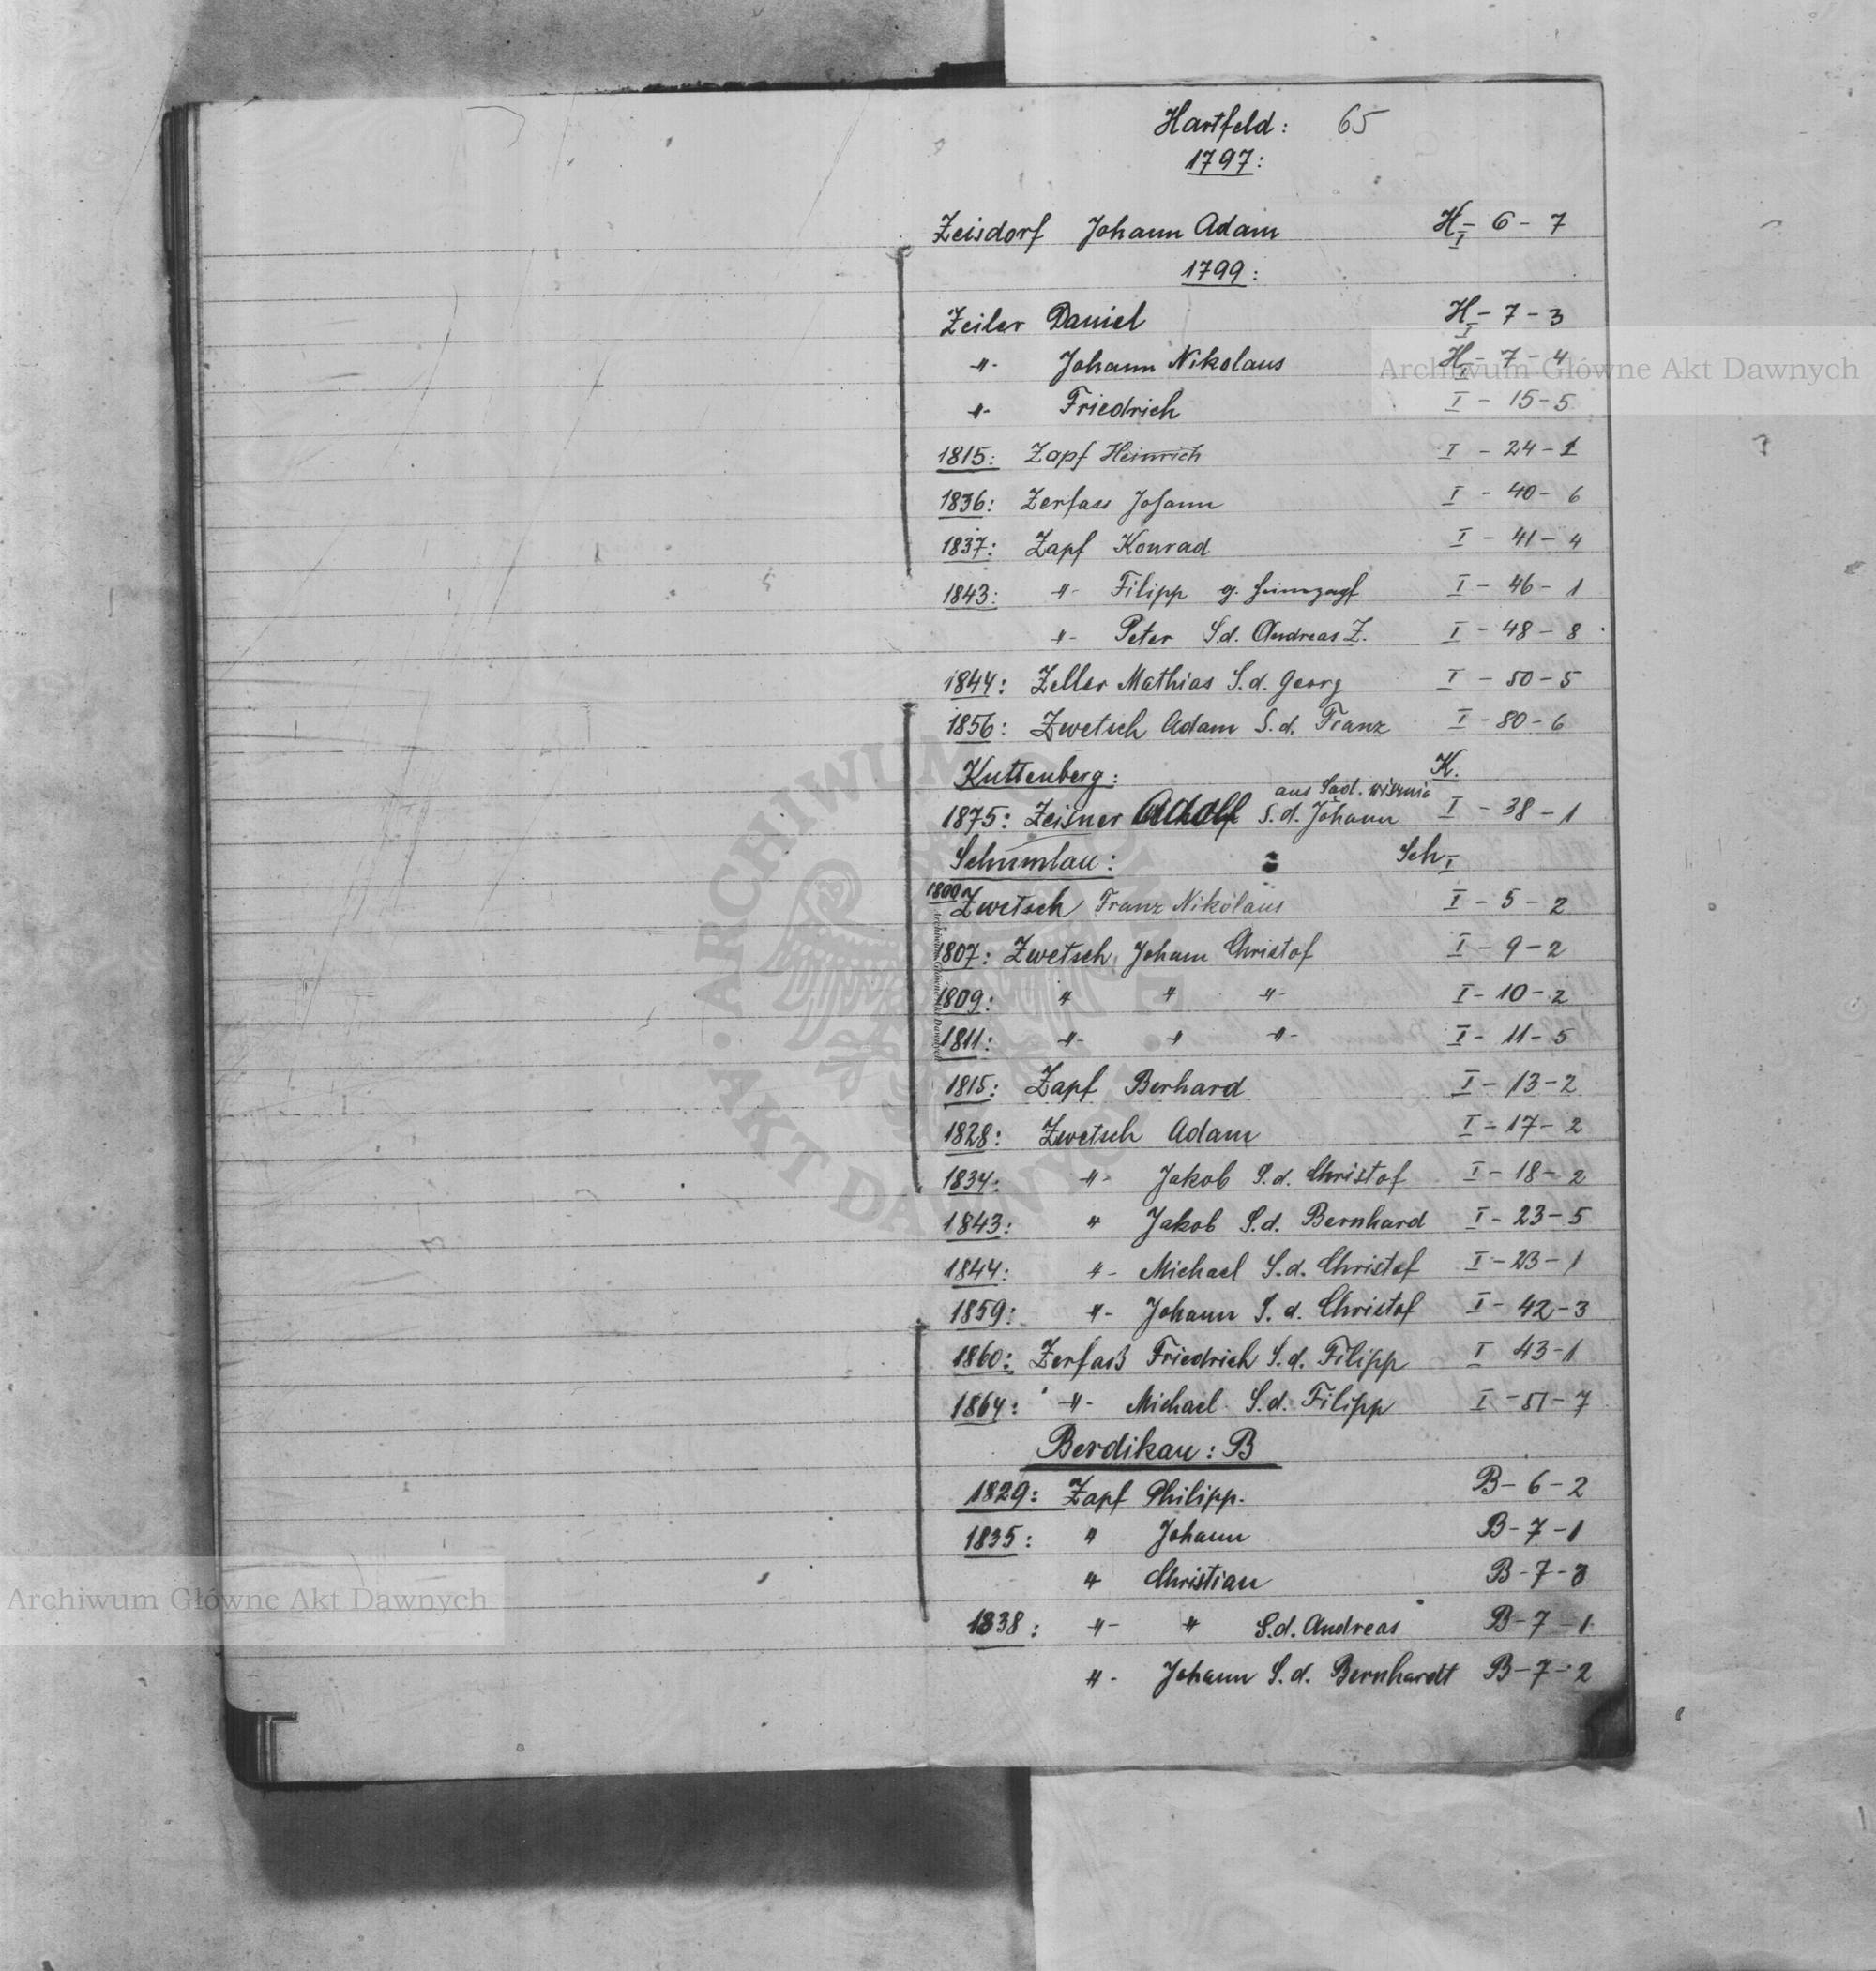 Hartfeld: 65
1797:
Zeisdorf Johann Adam H I - 6 - 7
1799:
Zeiler Daniel H I - 7 - 3
-"- Johann Nikolaus H I - 7 - 4
-"- Friedrich I - 15 - 5
1815: Zapf Heinrich I - 24 - 1
1836: Zerfass Johann I - 40 - 6
1837: Zapf Konrad I - 41 - 4
1843: -"- Filipp g. I - 46 - 1
-"- Peter S.d. Andreas Z. I - 48 - 8
1844: Zeller Mathias S.d. Georg I - 50 - 5
1856: Zwetsch Adam S.d. Franz I - 80 - 6
Kuttenberg: K.
aus Sad. wisznia
1875: Zeisner Adolf S.d. Johann I - 38 - 1
Schumlau: Sch I
1800 Zwetsch Franz Nikolaus I - 5 - 2
1807: Zwetsch Johann Christof I - 9 - 2
1809: " " -"- I - 10 - 2
1811: -"- " -"- I - 11 - 5
1815: Zapf Berhard I - 13 - 2
1828: Zwetsch Adam I - 17 - 2
1834: -"- Jakob S.d. Christof I - 18 - 2
1843: " Jakob S.d. Bernhard I - 23 - 5
1844: "- Michael S.d. Christof I - 23 - 1
1859: -"- Johann S.d. Christof I - 42 - 3
1860: Zerfaß Friedrich S.d. Filipp I 43 - 1
1864: -"- Michael S.d. Filipp I - 51 - 7
Berdikau: B
1829: Zapf Philipp. B - 6 - 2
1835: " Johann B - 7 - 1
" Christian B - 7 - 3
1838: -"- " S.d. Andreas B - 7 - 1
"- Johann S.d. Bernhardt B - 7 - 2
Archiwum Główne Akt Dawnych
Archiwum Główne Akt Dawnych
Archiwum Główne Akt Dawnych
ARCHIWUM GŁÓWNE AKT DAWNYCH